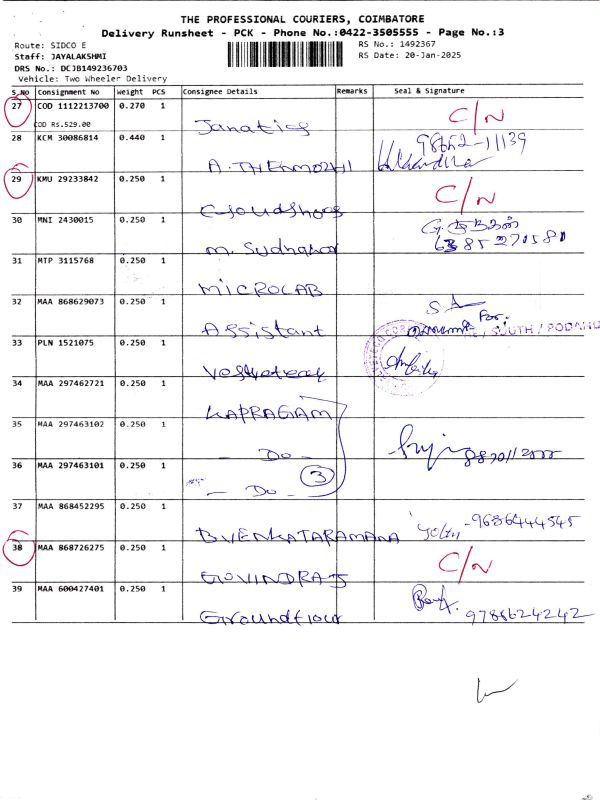 THE PROFESSIONAL COURIERS, COIMBATORE
Delivery Runsheet - PCK - Phone No.:0422-3505555 - Page No.:3
Route: SIDCO E
RS No.: 1492367
Staff: JAYALAKSHMI
RS Date: 20-Jan-2025
DRS No.: DCJB149236703
Vehicle: Two Wheeler Delivery
S.No Consignment No Weight PCS Consignee Details Remarks Seal & Signature
27 COD 1112213700 0.270 1 C/N
COD Rs.529.00 Janatics
28 KCM 30086814 0.440 1 98652-11139
A. THENMOZHI
29 KMU 29233842 0.250 1 C/N
30 MNI 2430015 0.250 1
M. Sudhakar 6385270580
31 MTP 3115768 0.250 1
MICROLAB
32 MAA 868629073 0.250 1 For.
Assistant / SOUTH / PODANU
33 PLN 1521075 0.250 1
34 MAA 297462721 0.250 1
KAPRAGAM
35 MAA 297463102 0.250 1
- Do -
36 MAA 297463101 0.250 1 3
- Do -
37 MAA 868452295 0.250 1 -9686444545
B VENKATARAMANA
38 MAA 868726275 0.250 1 C/N
GOVINDRAJ
39 MAA 600427401 0.250 1
Groundflour 9788624242